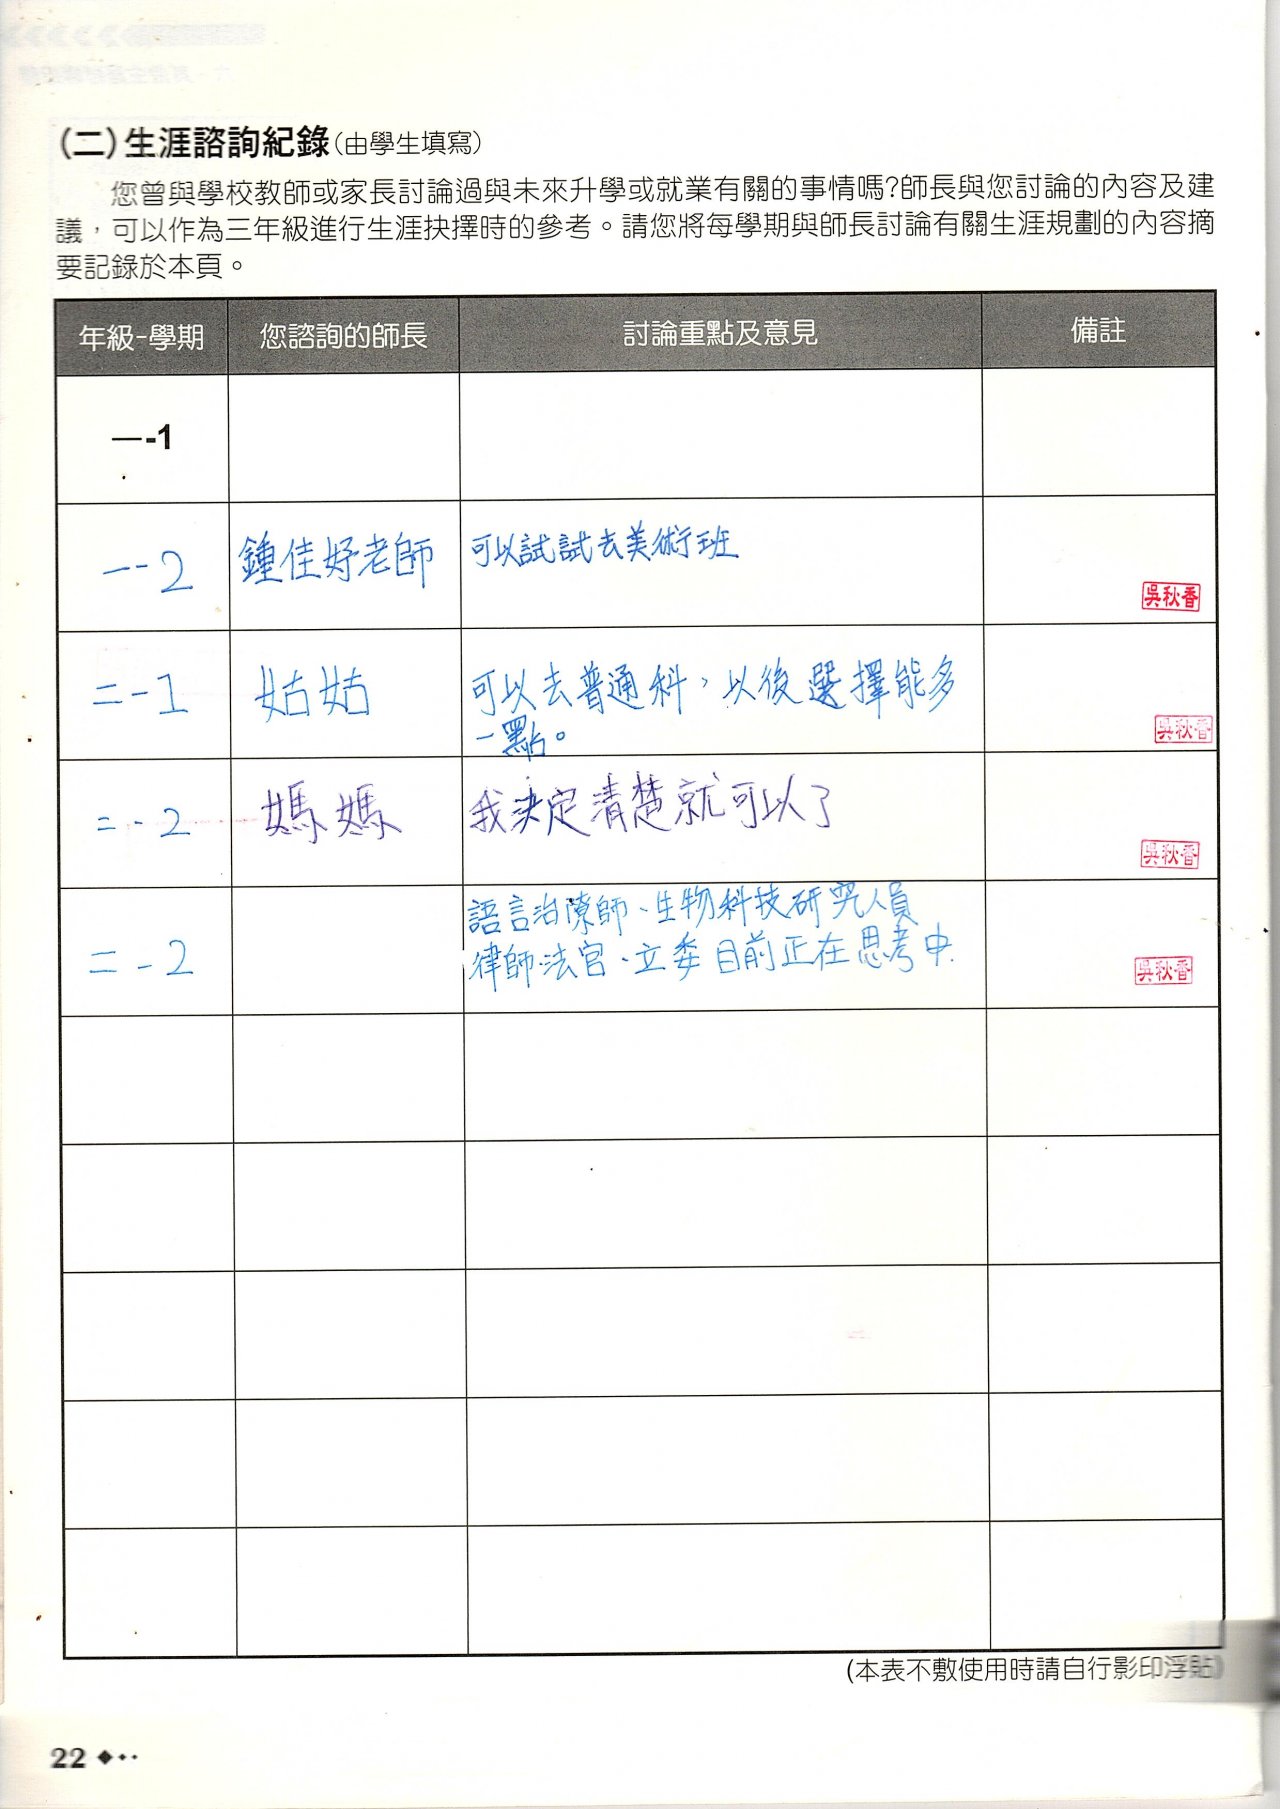 (二)生涯諮詢紀錄(由學生填寫)
您曾與學校教師或家長討論過與未來升學或就業有關的事情嗎?師長與您討論的內容及建
議，可以作為三年級進行生涯抉擇時的參考。請您將每學期與師長討論有關生涯規劃的內容摘
要記錄於本頁。
年級-學期 您諮詢的師長 討論重點及意見 備註
一-1
一-2 鍾佳妤老師 可以試試去美術班
吳秋香
二-1 姑姑 可以去普通科，以後選擇能多
一點。
吳秋香
二-2 媽媽 我決定清楚就可以了
吳秋香
語言治療師、生物科技研究人員
二-2 律師、法官、立委 目前正在思考中.
吳秋香
(本表不敷使用時請自行影印浮貼)
22